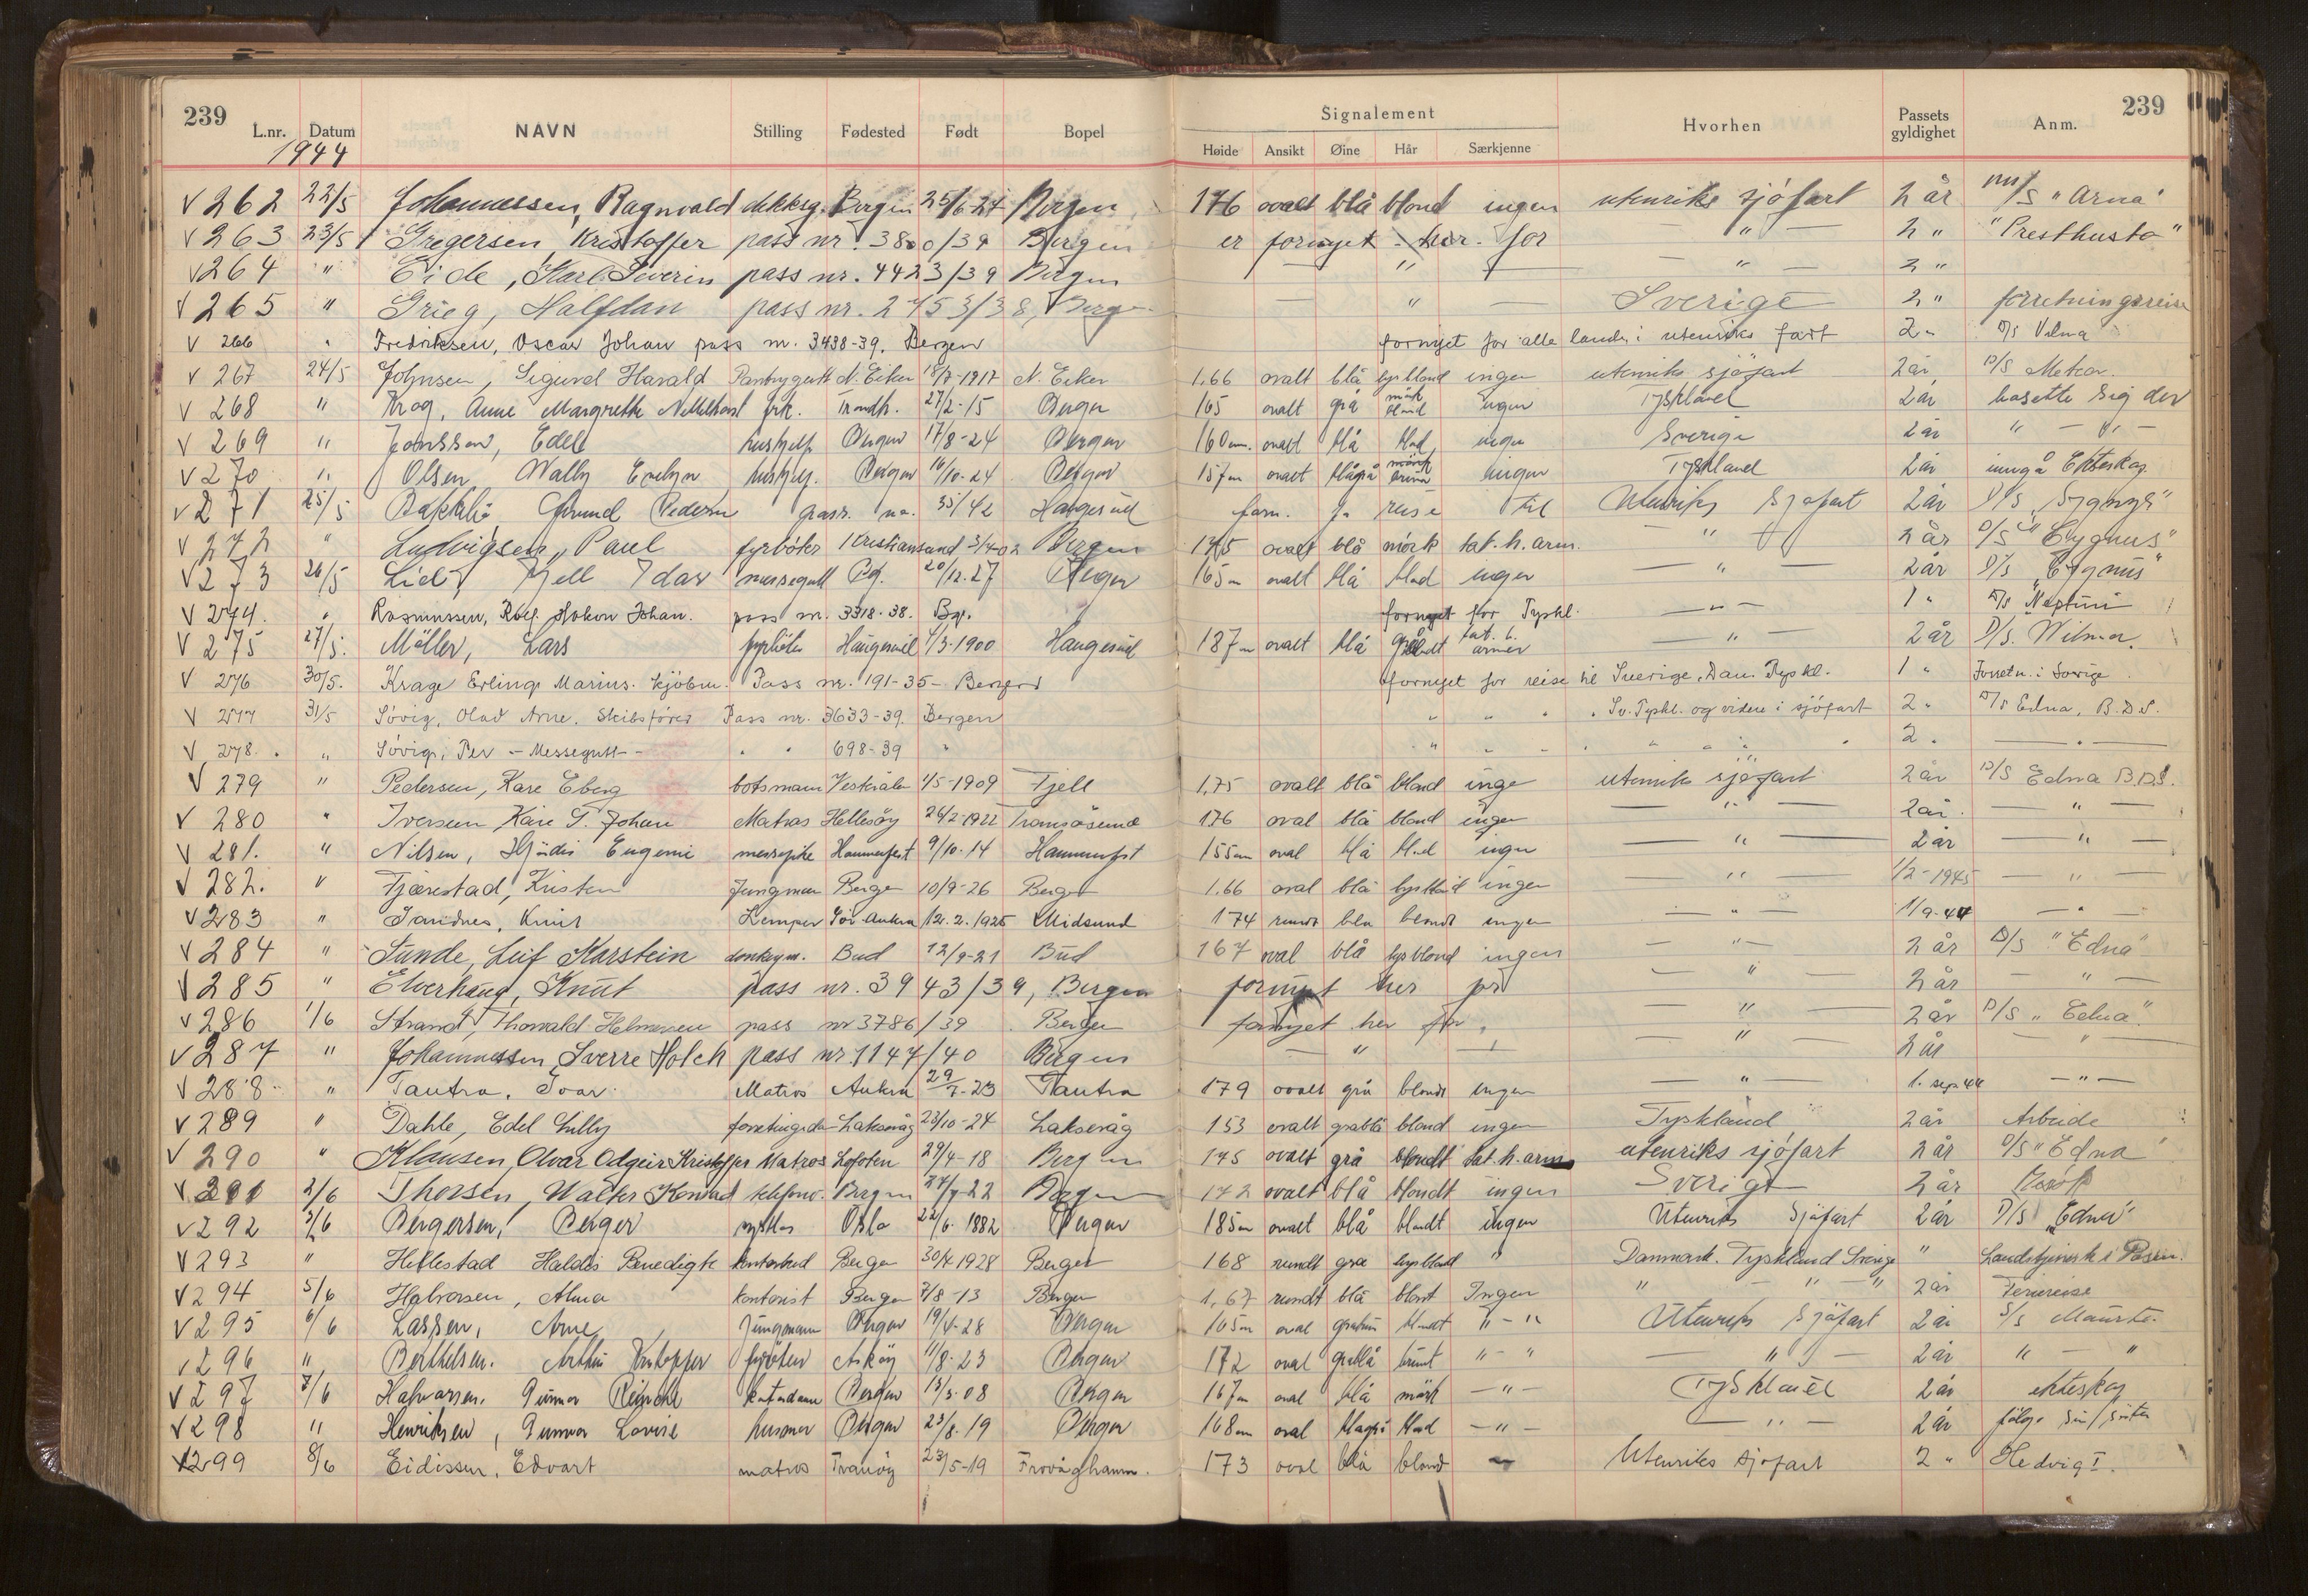 239
L.nr. Datum NAVN Stilling Fødested Født Bopel
1944
Signalement
Høide Ansikt Øine Hår Særkjenne Hvorhen Passets gyldighet Anm. 239
V 262 22/5 Johannessen, Ragnvald dekksg. Bergen 25/6-24 Bergen 176 ovalt blå blond ingen utenriks sjöfart 2 år M/S "Arna"
V 263 23/5 Gregersen, Kristoffer pass nr. 3800/39 Bergen er fornyet her for — " — 2 " "Presthus
V 264 " Eide, Karl Severin pass nr. 4423/39 Bergen — " — — " — 2 "
V 265 " Grieg, Halfdan pass nr. 2453/38, Bergen — " — Sverige 2 " forretningsreise
V 266 " Fredriksen, Oscar Johan pass nr. 3438-39. Bergen fornyet for alle lande i utenriks fart 2 " D/S Vilma
V 267 24/5 Johnsen, Sigurd Harald N. Eiker 18/7-1917 N. Eiker 1.66 ovalt blå lysblond ingen utenriks sjöfart 2 år D/S Meteor.
V 268 " Krag, Anne Margrethe frk. Trondh. 27/2-15 Bergen 165 ovalt grå mörk blond ingen Tyskland 2 år bosette sig der
V 269 " Jonssen, Edel hushjelp Bergen 17/8-24 Bergen 160 cm. ovalt blå blond ingen Sverige 2 år " — " —
V 270 " Olsen Wally Evelyn hushjelp. Bergen 16/10-24 Bergen 157 cm ovalt blågrå mörk brun ingen Tyskland 2 år inngå Ekteskap
V 271 25/5 Pedersen pass. no. 35/42 Haugesund forn. for reise til Utenriks Sjöfart 2 år D/S "Sygnus"
V 272 " Ludvigsen, Paul fyrböter Kristiansund 3/4-02 Bergen 175 ovalt blå mörk tat. h. arm. — " — 2 år D/S "Cygnus"
V 273 26/5 Lid, Kjell Idar messegutt Bg. 20/12-27 Bergen 165 cm ovalt blå blond ingen — " — 2 år D/S "Cygnus"
V 274. " Rasmussen, Rolf Håkon Johan. pass nr. 3318-38. Bg. fornyet for Tyskl. — " — 1 " D/S Neptun
V 275 27/5. Möller, Lars fyrböter Haugesund 1/3-1900 Haugesund 187 cm ovalt blå gråblondt tat. b. armer — " — 2 år D/S. Wilma.
V 276 30/5. Krage Erling Marius. Kjöbm. Pass nr. 191-35- Bergen fornyet for reise til Sverige, Dan. Tyskl. 1 " Forretn. i Sverige.
V 277 31/5 Sövig, Olav Arne. Skibsförer Pass nr. 3633-39. Bergen " " " " Sv. Tyskl. og videre i sjöfart 2 " D/S Edna, B.D.S.
V 278. " Sövig, Per - Messegutt- " " 698-39 " " " " " " " " " 2. — " —
V 279 " Pedersen, Kåre Eberg botsmann Vesterålen 1/5-1909 Fjell 1.75 ovalt blå blond inge utenriks sjöfart 2 år D/S Edna B.D.S.
V 280 " Iversen Kåre T. Johan Matros Hellesöy 26/2-1922 Tromsösund 176 oval blå blond ingen — " — 2 år. — " —
V 281. " Nilsen, Hjördis Eugenie messepike Hammerfest 9/10-14 Hammerfest 155 cm oval blå blond ingen — " — 2 år — " —
V 282. " Tjærestad, Kristen Jungman Bergen 10/9-26 Bergen 1.66 oval blå lysblond ingen — " — 1/2-1945 — " —
V 283 " Sandnes, Knut Lemper Sör Aukra 12.2.1925 Midsund 174 rundt blå blondt ingen — " — 1/9-44 — " —
V 284 " Sunde, Leif Karstein donkeym. Bud 12/9-21 Bud 167 oval blå lysblond ingen — " — 2 år D/S "Edna"
V 285 " Elverhaug, Knut pass nr. 3943/39, Bergen fornyet her på — " — 2 år — " —
V 286 1/6 Strand, Thorvald pass nr 3786/39 Bergen fornyet her for — " — 2 år D/S "Edna"
V 287 " Johannessen, Sverre Holck pass nr. 1147/40 Bergen — " — — " — 2 år — " —
V 288 " Tautra, Ivar. Matros Aukra 29/7-23 Tautra 179 ovalt grå blondt ingen — " — 1. sep 44 — " —
V 289 " Dahle, Edel Lilly Laksevåg 23/10-24 Laksevåg 153 ovalt gråblå blond ingen Tyskland 2 år Arbeide
V 290 " Klausen, Alvar Odgeir Kristoffer Matros Lofoten 29/4-18 Bergen 175 ovalt grå blondt tat. h. arm utenriks sjöfart 2 år D/S "Edna"
V 291 2/6 Thorsen, Walter Konrad telefonr. Bergen 22 Bergen 172 ovalt blå blondt ingen Sverige 2 år
V 292 3/6 Bergersen, Berger Oslo 22/6-1882 Bergen 185 cm ovalt blå blondt ingen Utenriks Sjöfart 2 år D/S "Edna"
V 293 " Hellestad Haldis Benedigte Bergen 30/4-1928 Bergen 168 rundt grå lysblond " Danmark. Tyskland Sverige "
V 294 5/6 Halvorsen, Alma kontorist Bergen 7/8-13 Bergen 1,67 rundt blå blont Ingen " — " — " 2 år Feriereise
V 295 6/6 Lassen, Arne Jungmann Bergen 19/4-28 Bergen 165 cm oval blondt " — " Utenriks Sjöfart 2 år S/S
V 296 " Berthelsen. Kristoffer fyrböter Asköy 11/8-23 Bergen 172 oval gråblå brunt " — " — " — 2 år " — "
V 297 7/6 Halvorsen. Gunnar Bergen 13/3-08 Bergen 167 cm oval blå mörk — " — Tyskland 2 år ekteskap
V 298 " Henriksen, Gunvor Lovise husmor Bergen 23/8-19 Bergen 168 cm oval blågrå blond — " — — " — 2 år fölge sin söster
V 299 8/6 Eidissen, Edvart matros Tranöy 23/5-19 173 oval blå blond Utenriks sjöfart 2 " Hedvig I.